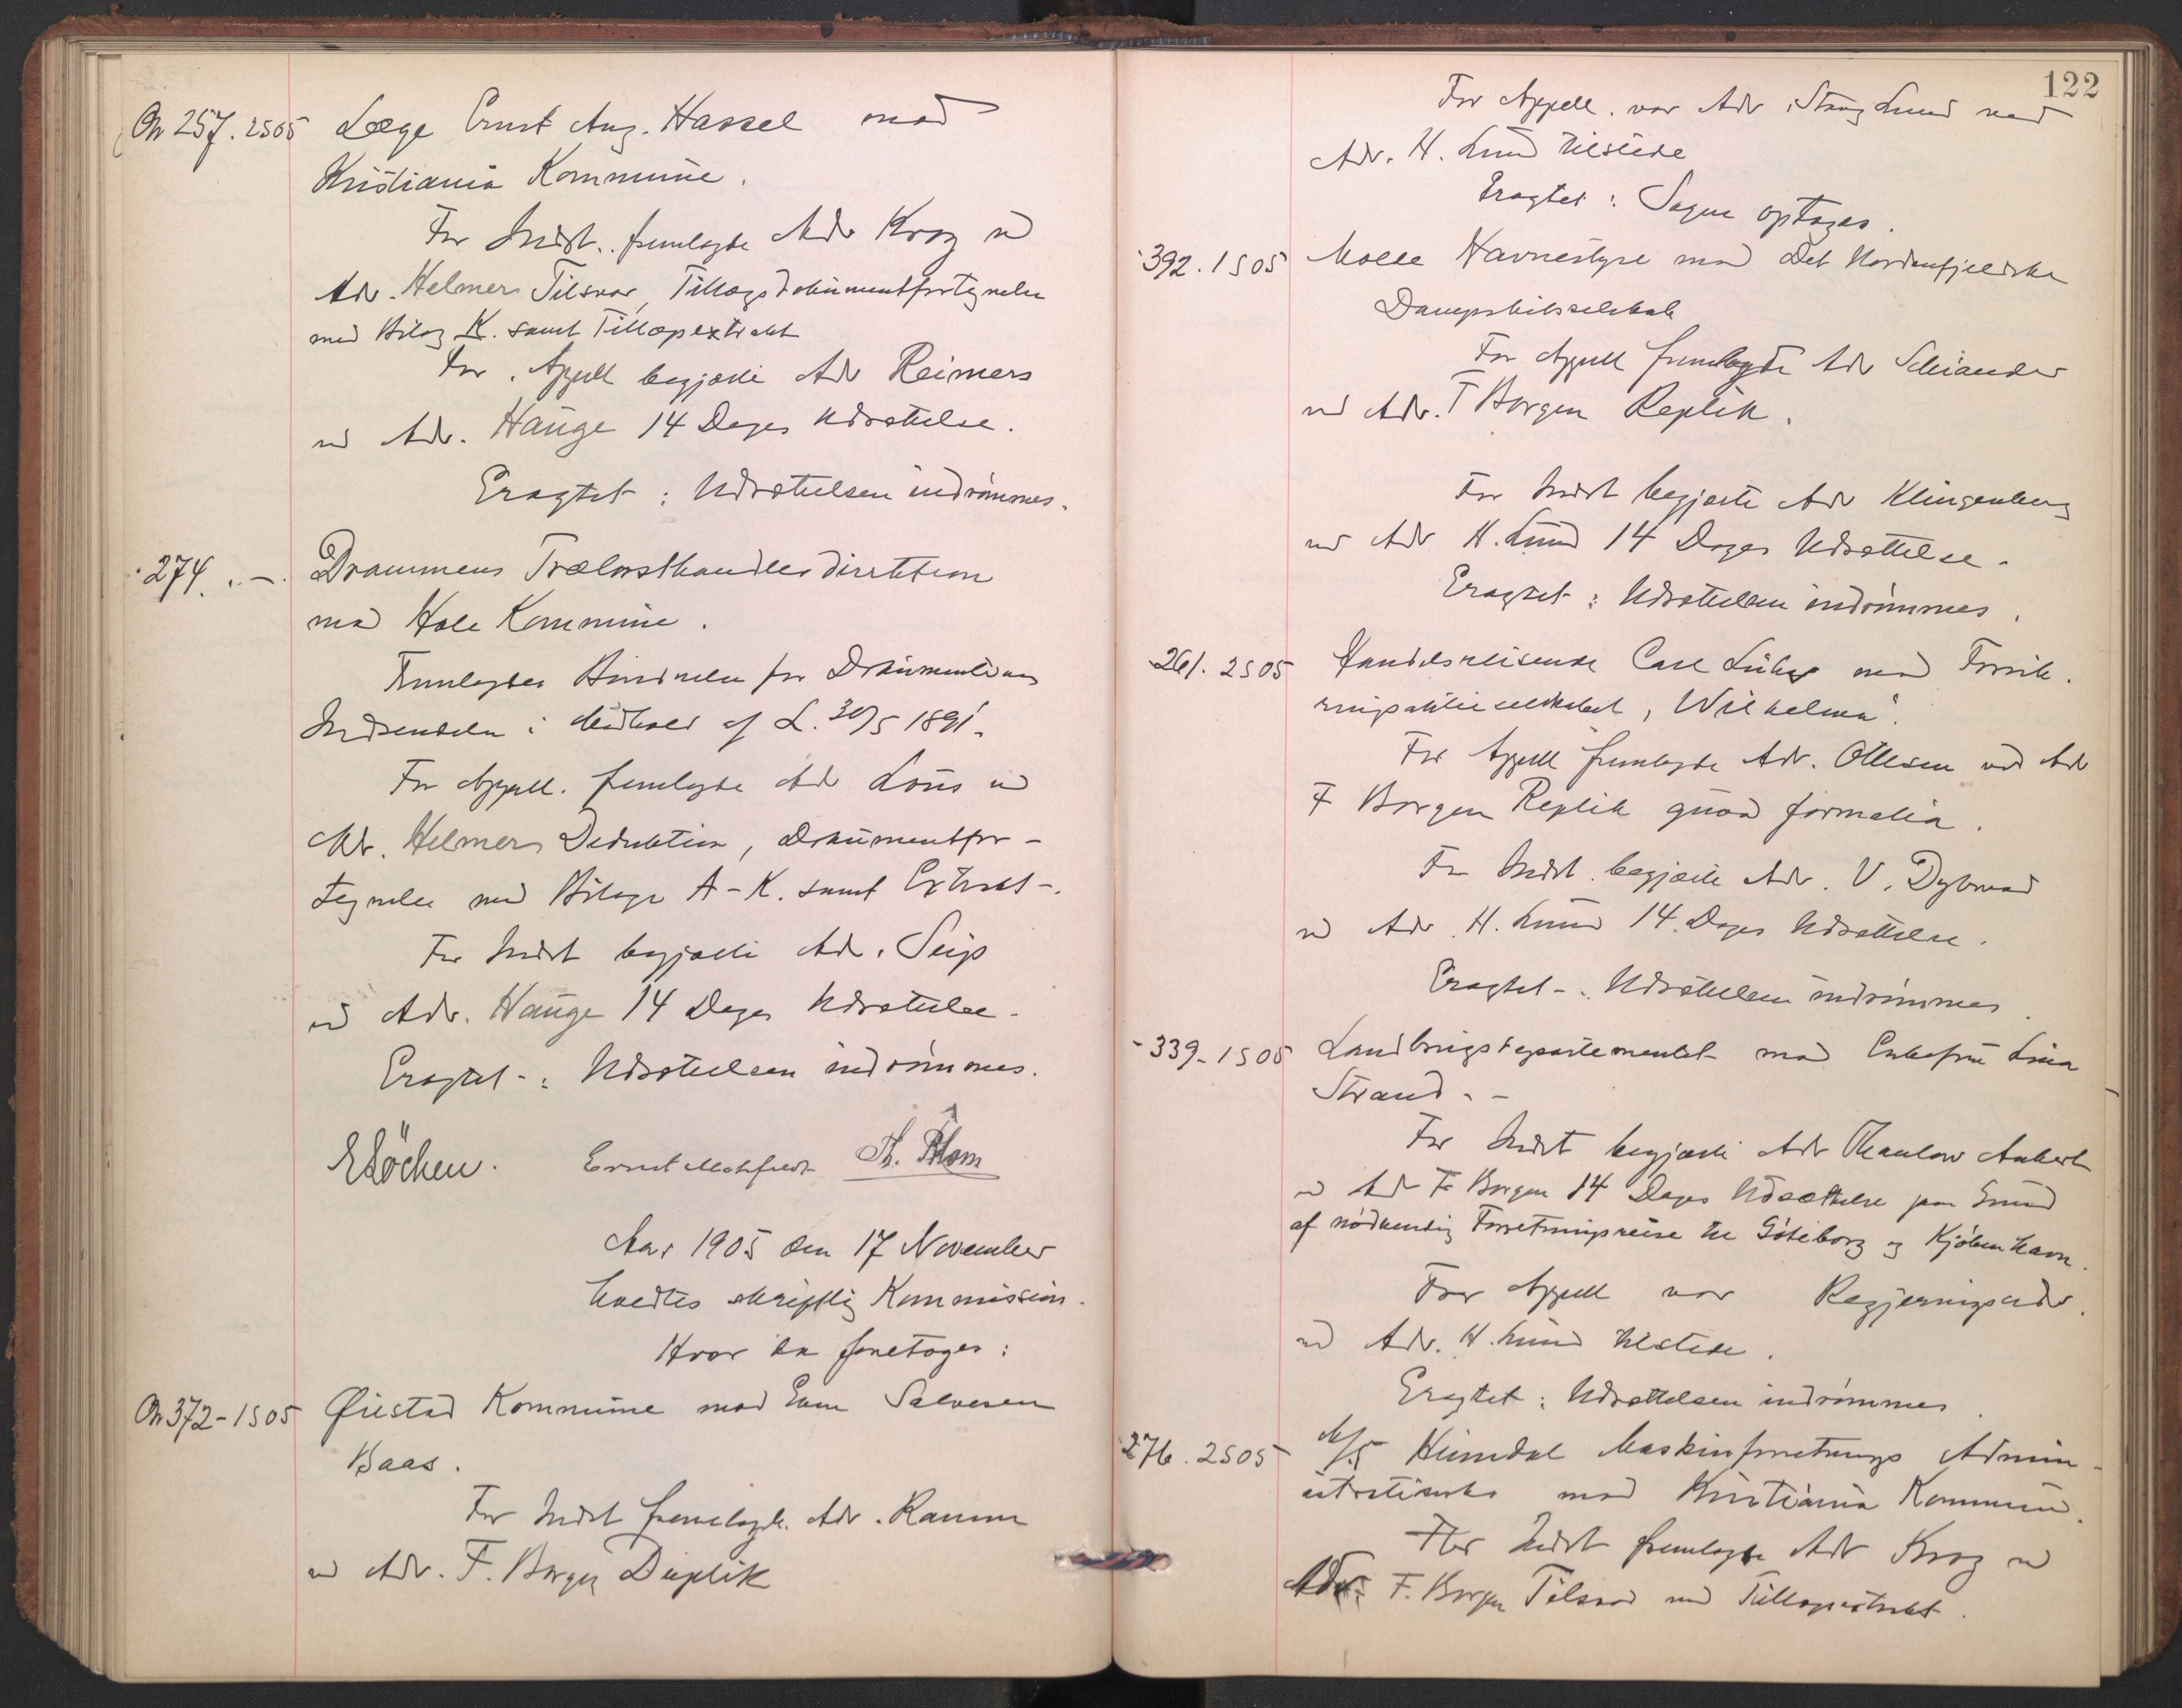 On 257. 2S05 Læge Ernst Aug. Hassel mod
Kristiania Kommune.
For Indst. fremlagde Adv Krog v
Adv. Helmers Tilsvar, Tillægsdokumentfortegnelse
med Bilag K. samt Tillægsextrakt
For Appell begjærte Adv Reimers
v Adv. Hauge 14 Dages Udsættelse.
Eragtet: Udsættelsen indrømmes.
" 274. " — Drammens Trælasthandlerdirektion
mod Hole Kommune.
Fremlagdes Kjendelse for Dokumenternes
Indsendelse i Medhold af L. 30/5 1891.
For Appell. fremlagde Adv Lous v
Adv. Helmers Deduktion, Dokumentfor-
tegnelse med Bilage A-K. samt Extrakt.
For Indst begjærte Adv. Seip
v Adv. Hauge 14 Dages Udsættelse.
Eragtet: Udsættelsen indrømmes.
E Løchen. Ernst Motzfeldt Th. Blom
Aar 1905 den 17 November
holdtes skriftlig Kommission.
Hvor da foretoges:
On 372-1S05 Øiestad Kommune mod Even Salvesen
Baas.
For Indst fremlagde Adv. Ramm
v Adv. F. Borgen Duplik
122
For Appell. var Adv. Stang Lund ved
Adv. H. Lund tilstede
Eragtet: Sagen optages.
" 392. 1S05 Molde Havnestyre mod Det Nordenfjeldske
Dampskibsselskab
For Appell fremlagde Adv Schiander
ved Adv. F Borgen Replik.
For Indst begjærte Adv Klingenberg
ved Adv H. Lund 14 Dages Udsættelse.
Eragtet: Udsættelsen indrømmes.
261. 2S05 Handelsreisende Carl mod Forsik.
ringsaktieselskabet "Wilhelma".
For Appell fremlagde Adv. Ottesen ved Adv
F Borgen Replik quoad formalia.
For Indst. begjærte Adv. V. Dybwad
v Adv. H. Lund 14 Dages Udsættelse.
Eragtet: Udsættelsen indrømmes
" 339-1S05 Landbrugsdepartementet mod Enkefru Lina
Strand.
For Indst begjærte Adv Thaulow Aubert
v Adv F Borgen 14 Dages Udsættelse paa Grund
af nødvendig Forretningsreise til Göteborg og Kjøbenhavn.
For Appell var Regjeringsadv.
v Adv. H. Lund tilstede.
Eragtet: Udsættelsen indrømmes
" 276. 2S05 A/S Heimdal Maskinforretnings Admin-
istrationsbo mod Kristiania Kommune.
For Indst fremlagde Adv Krog v
Adv. F. Borgen Tilsvar med Tillægsextrakt.